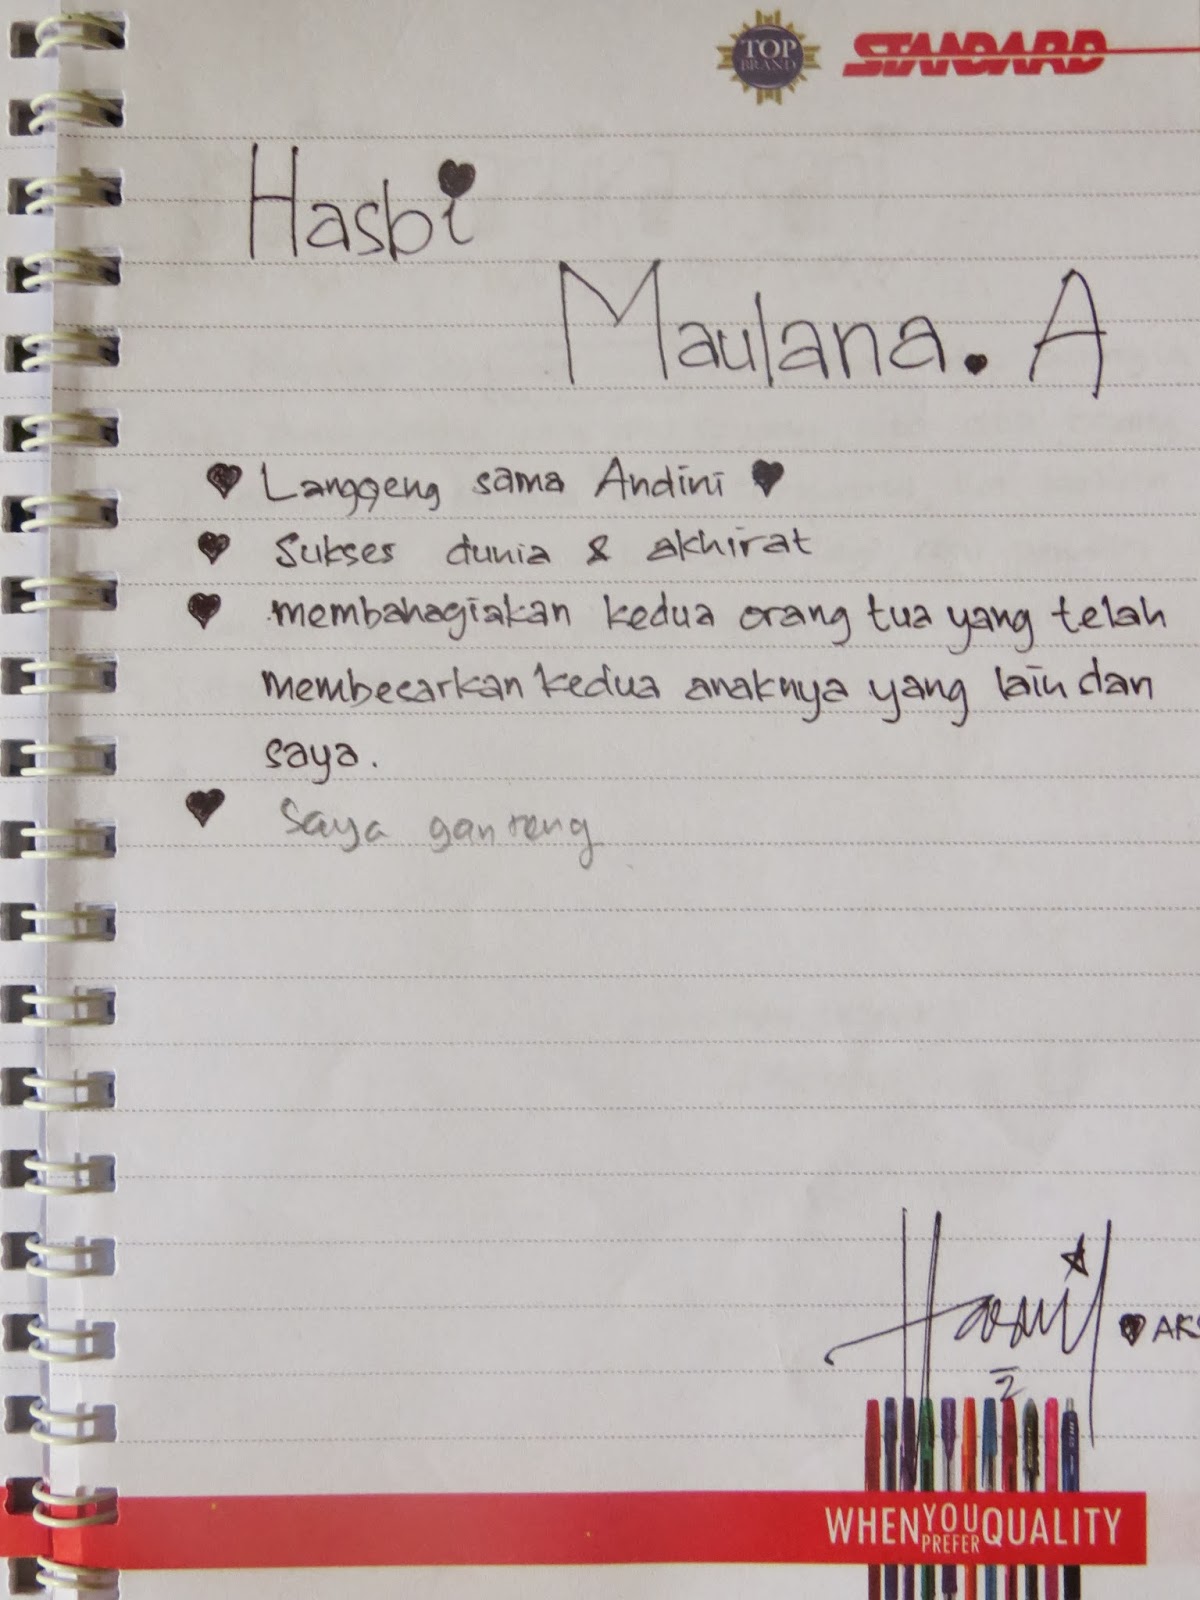 TOP
BRAND
STANDARD
Hasbi
Maulana. A
Langgeng sama Andini
Sukses dunia & akhirat
membahagiakan kedua orang tua yang telah
membesarkan kedua anaknya yang lain dan
saya.
Saya ganteng
AKS
WHEN YOU PREFER QUALITY